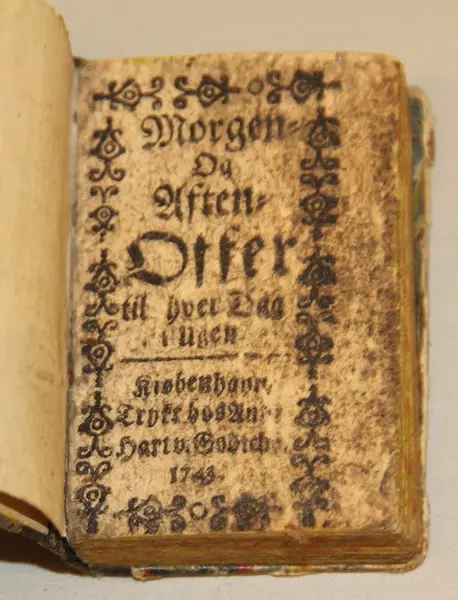 Morgen-
Og
Aften-
Offer
til hver Dag
i Ugen
Kiøbenhavn,
Trykt hos And:
Hartv. Godiche,
1743.